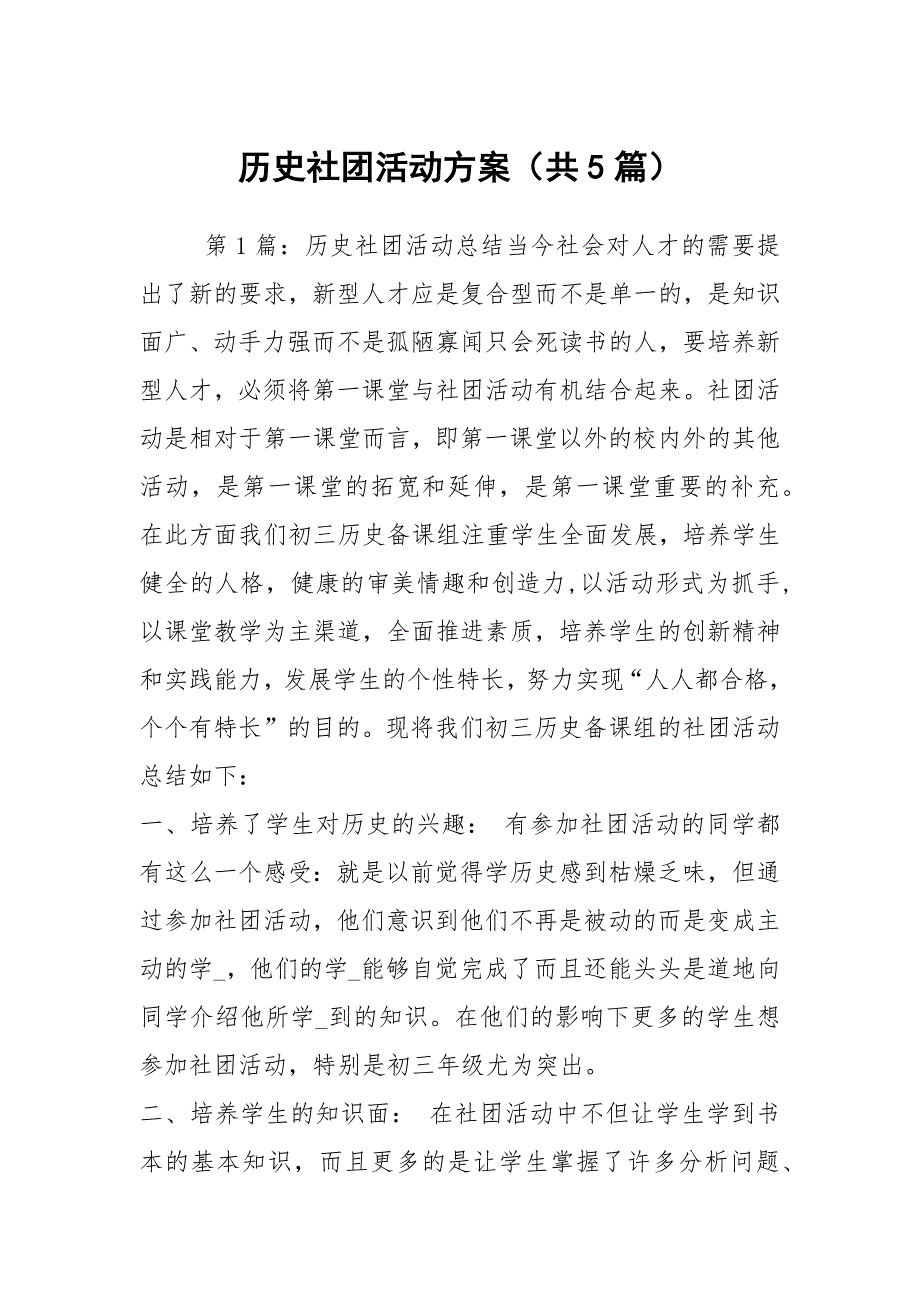 历史社团活动方案（共5篇）
第1篇：历史社团活动总结当今社会对人才的需要提
出了新的要求，新型人才应是复合型而不是单一的，是知识
面广、动手力强而不是孤陋寡闻只会死读书的人，要培养新
型人才，必须将第一课堂与社团活动有机结合起来。社团活
动是相对于第一课堂而言，即第一课堂以外的校内外的其他
活动，是第一课堂的拓宽和延伸，是第一课堂重要的补充。
在此方面我们初三历史备课组注重学生全面发展，培养学生
健全的人格，健康的审美情趣和创造力,以活动形式为抓手,
以课堂教学为主渠道，全面推进素质，培养学生的创新精神
和实践能力，发展学生的个性特长，努力实现“人人都合格，
个个有特长”的目的。现将我们初三历史备课组的社团活动
总结如下：
一、培养了学生对历史的兴趣： 有参加社团活动的同学都
有这么一个感受：就是以前觉得学历史感到枯燥乏味，但通
过参加社团活动，他们意识到他们不再是被动的而是变成主
动的学_，他们的学_能够自觉完成了而且还能头头是道地向
同学介绍他所学_到的知识。在他们的影响下更多的学生想
参加社团活动，特别是初三年级尤为突出。
二、培养学生的知识面： 在社团活动中不但让学生学到书
本的基本知识，而且更多的是让学生掌握了许多分析问题、